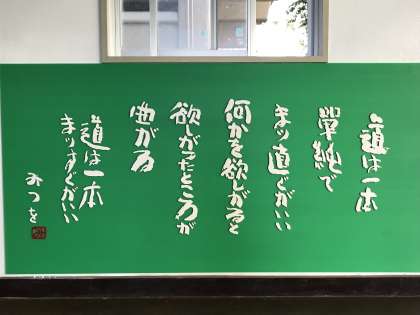 道は一本
単純で
まッ直ぐがいい
何かを欲しがると
欲しがったところが
曲がる
道は一本
まッすぐがいい
みつを